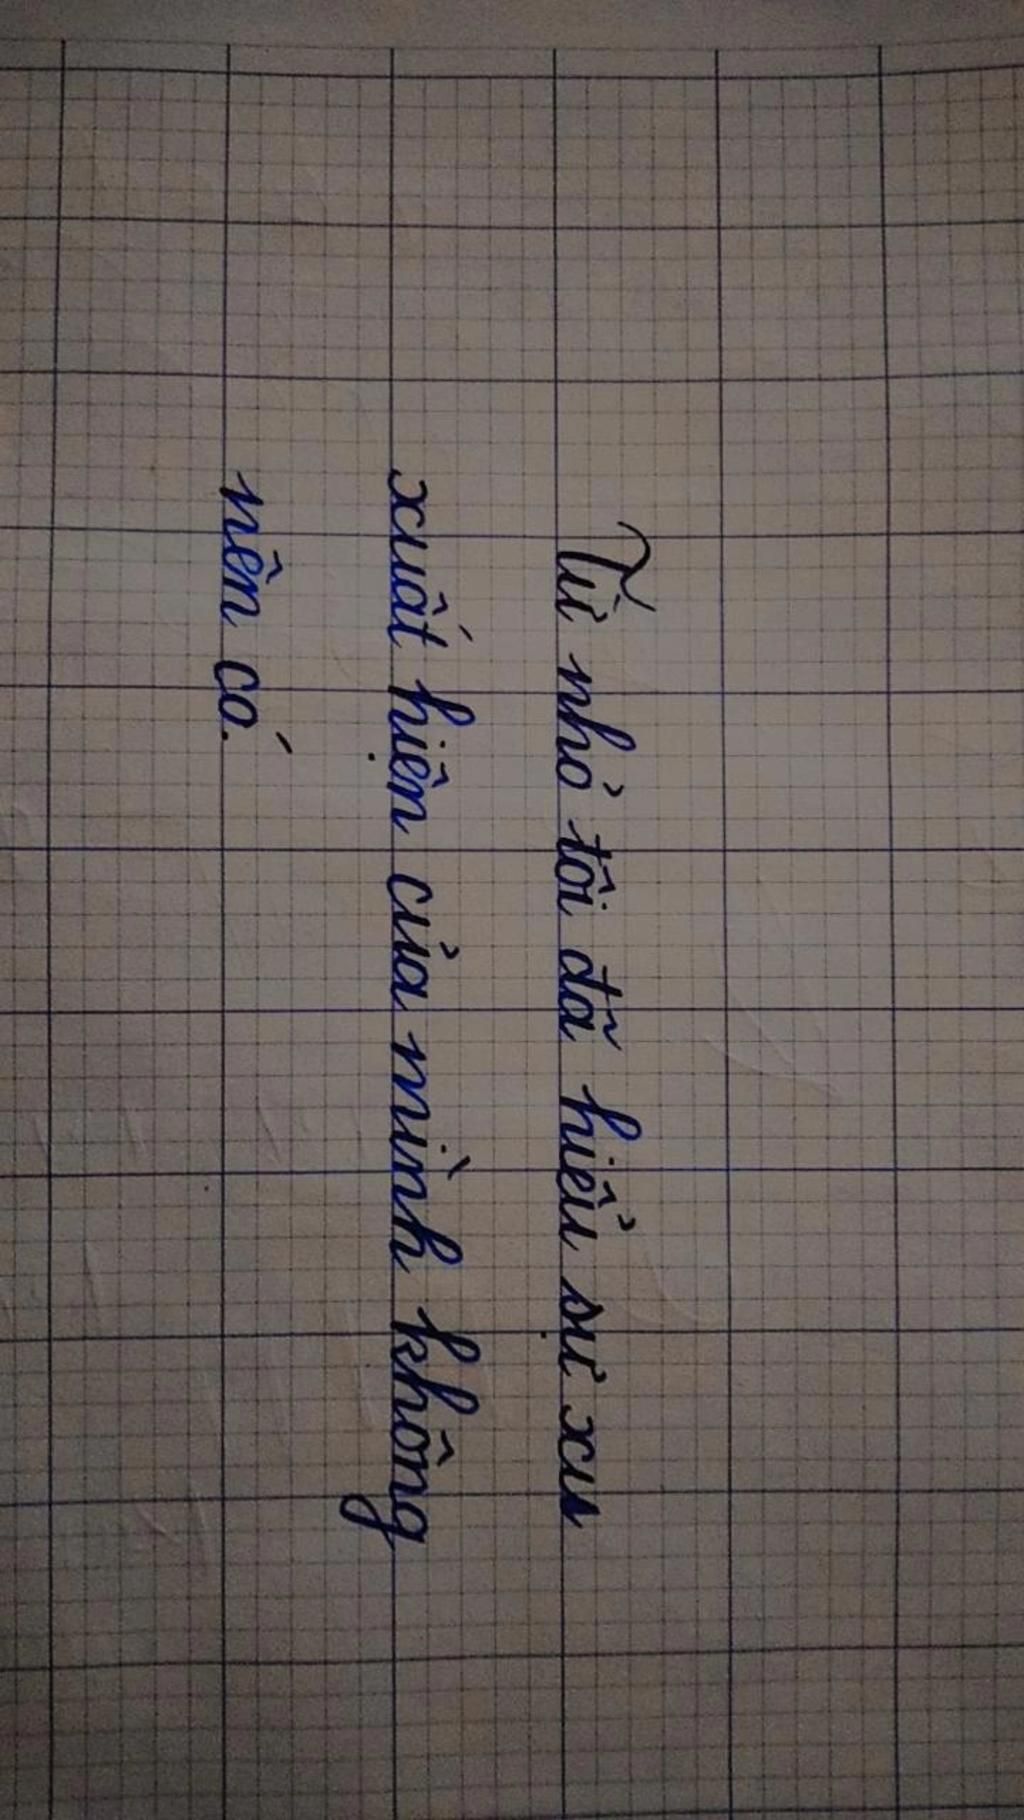 Từ nhỏ tôi đã hiểu sự xu
xuất hiện của mình không
nên có.